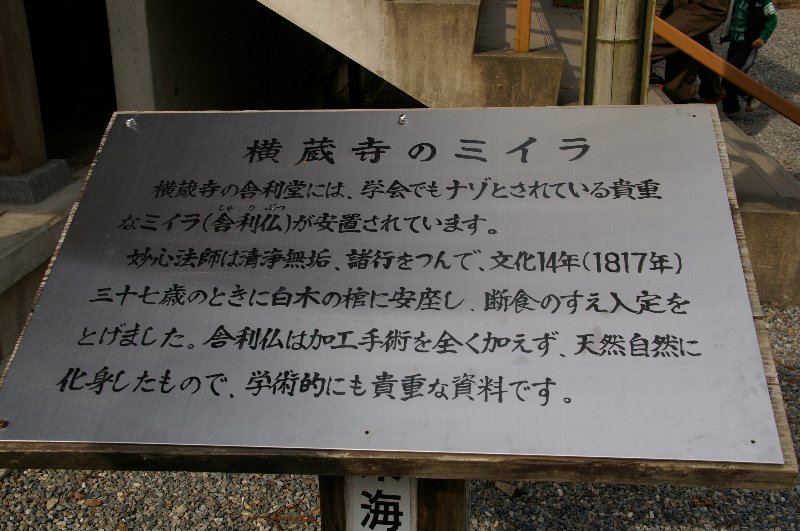 横蔵寺のミイラ
横蔵寺の舎利堂には、学会でもナゾとされている貴重
なミイラ(舎利仏)が安置されています。
しゃりぶつ
妙心法師は清浄無垢、諸行をつんで、文化14年(1817年)
三十七歳のときに白木の棺に安座し、断食のすえ入定を
とげました。舎利仏は加工手術を全く加えず、天然自然に
化身したもので、学術的にも貴重な資料です。
海